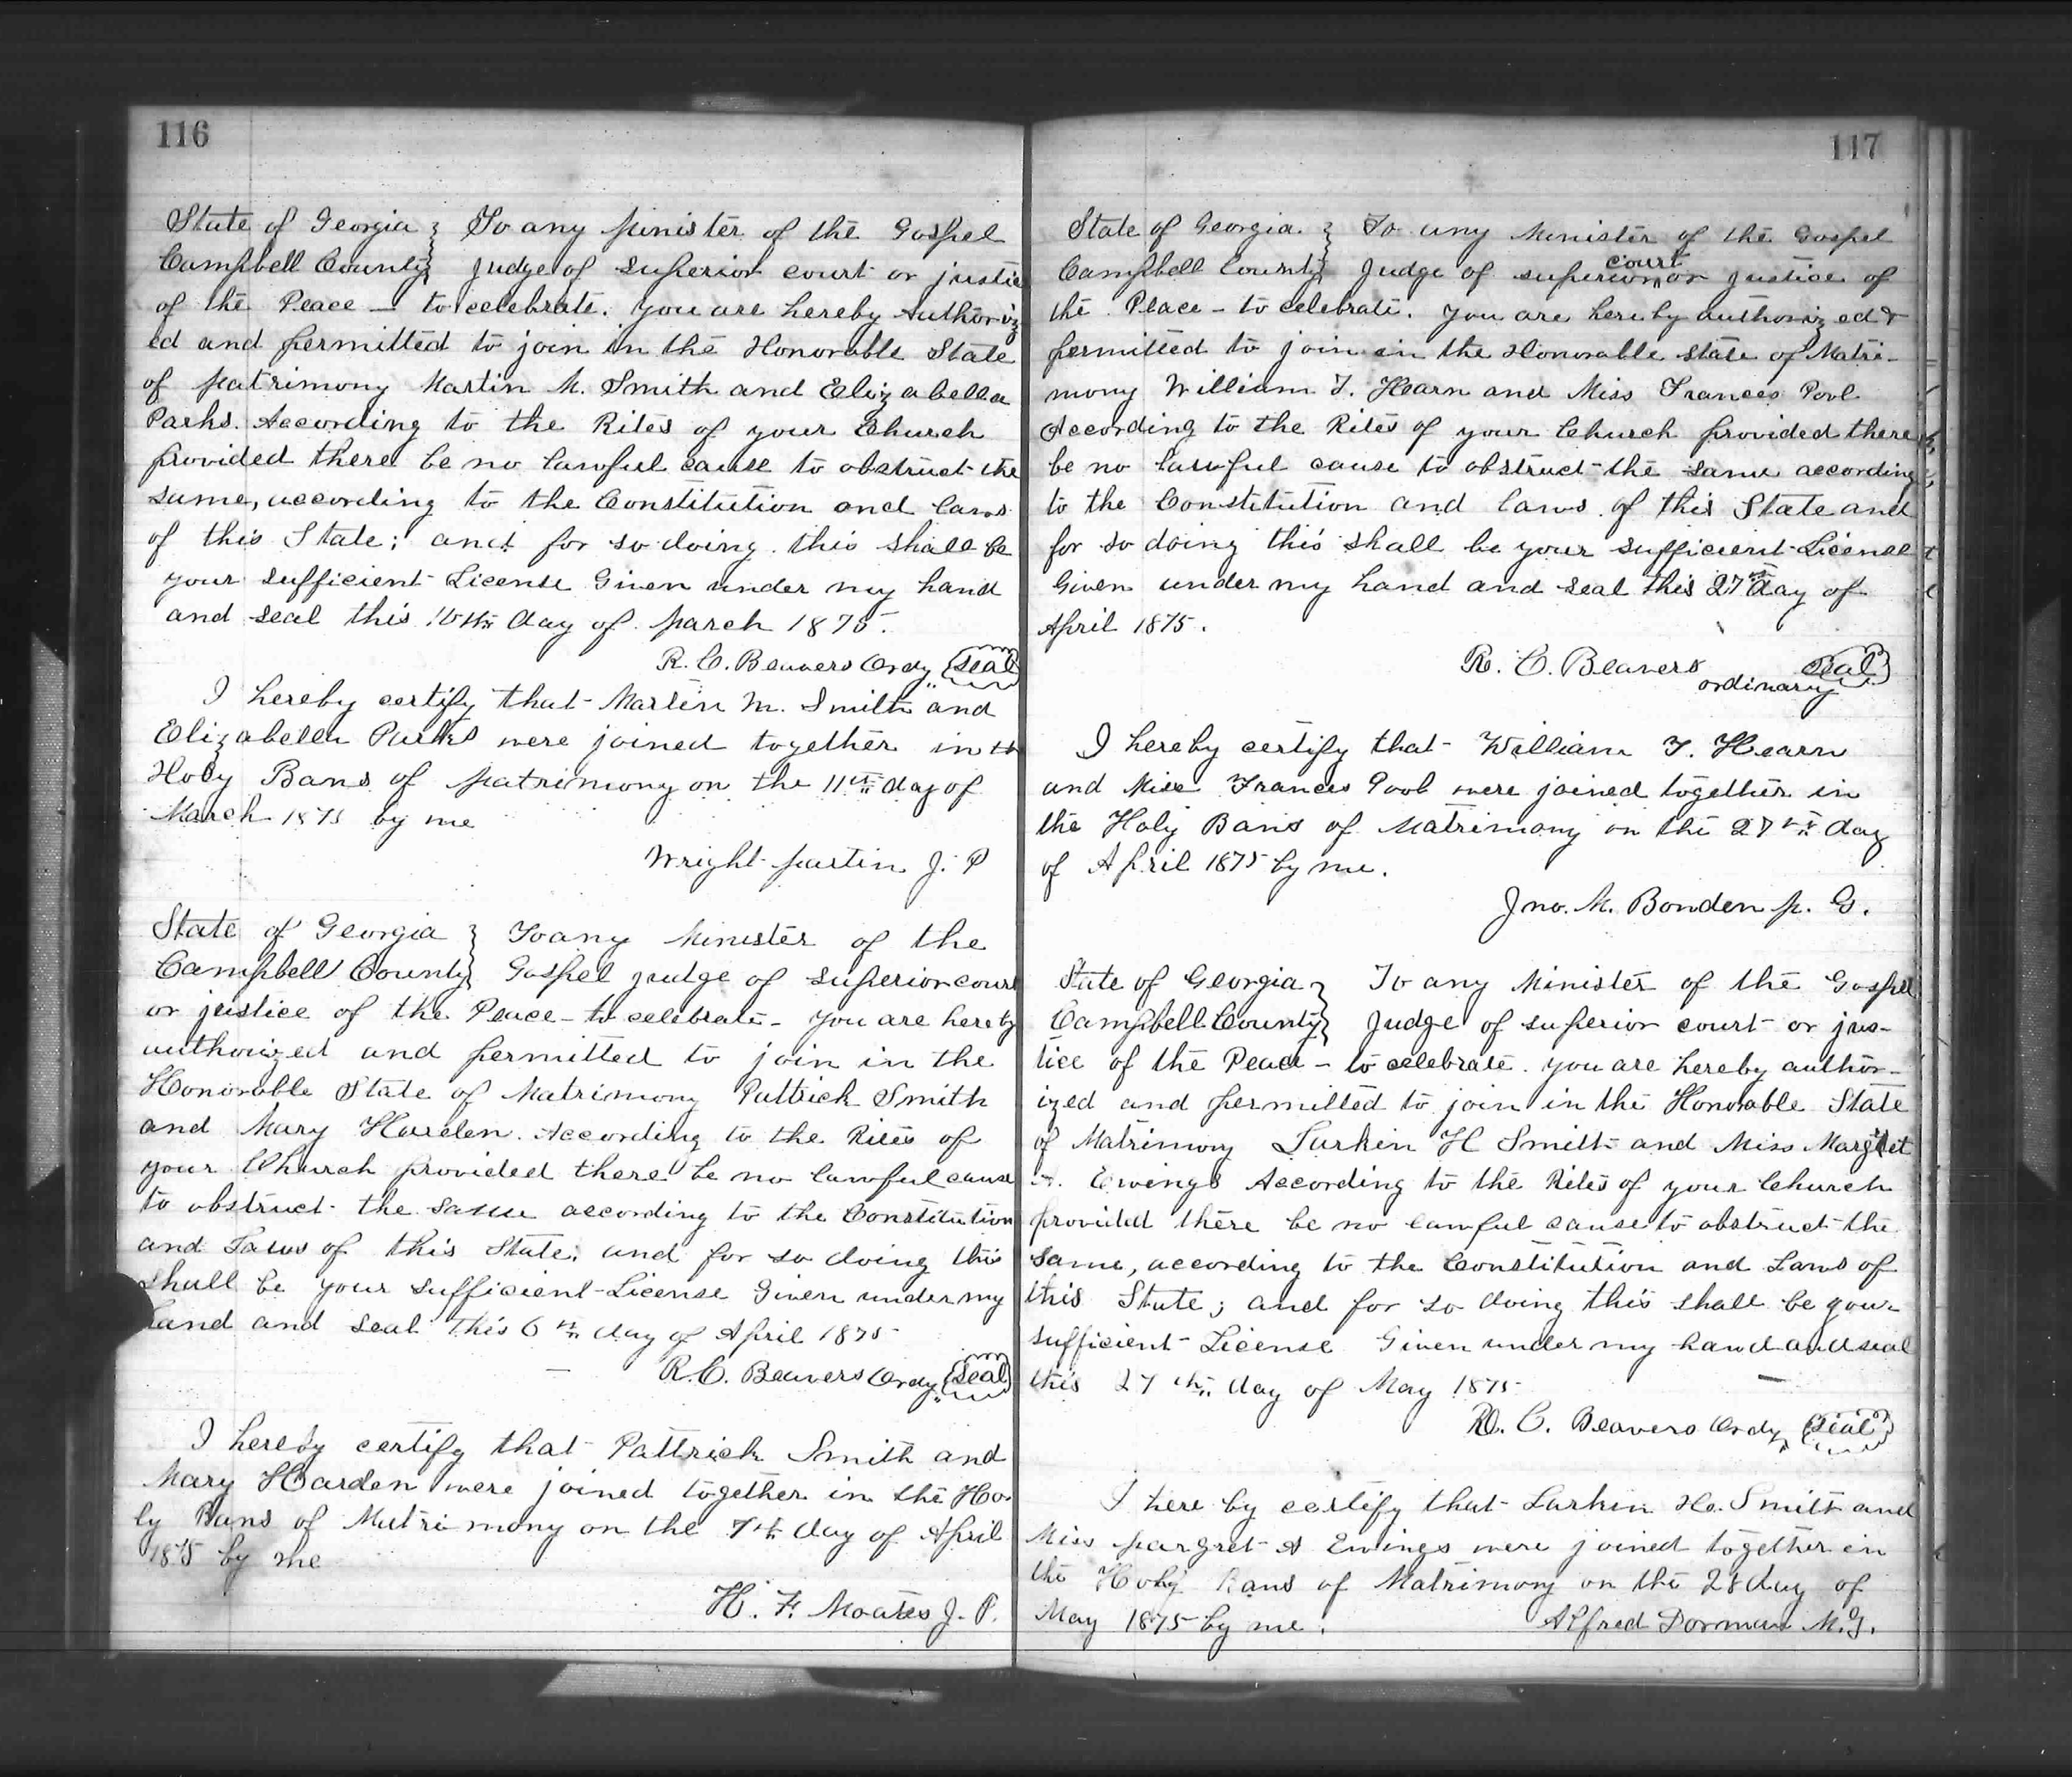 116
State of Georgia } To any Minister of the Gospel
Campbell County } Judge of Superior court or justice
of the Peace – to celebrate. you are hereby Authoriz
ed and permitted to join in the Honorable State
of Matrimony Martin M. Smith and Elizabella
Parks. According to the Rites of your Church
provided there be no lawful cause to obstruct the
same, according to the Constitution and laws
of this State; and for so doing this shall be
your sufficient License Given under my hand
and seal this 10th day of March 1875.
R. C. Beavers Ordy. Seal
I hereby certify that Martin M. Smith and
Elizabella Parks were joined together in th
Holy Bans of Matrimony on the 11th day of
March 1875 by me
Wright Martin J. P
State of Georgia } To any Minister of the
Campbell County } Gospel judge of superior court
or justice of the Peace – to celebrate – you are hereby
authorized and permitted to join in the
Honorable State of Matrimony Pattrick Smith
and Mary Harden. According to the Rites of
your Church provided there be no lawful cause
to obstruct the same according to the Constitution
and Laws of this State; and for so doing this
shall be your sufficient License Given under my
hand and seal this 6th day of April 1875
R. C. Beavers Ordy. Seal
I hereby certify that Pattrick Smith and
Mary Harden were joined together in the Ho-
ly Bans of Matrimony on the 7th day of April
1875 by me
H. F. Moates J. P.
117
State of Georgia. } To any Minister of the Gospel
Campbell County } Judge of superior court or Justice of
the Peace – to celebrate. you are hereby authorized &
permitted to join in the Honorable state of Matri-
mony William T. Hearn and Miss Frances Pool
According to the Rites of your Church provided there
be no lawful cause to obstruct the same according
to the Constitution and laws of this State and
for so doing this shall be your sufficient License
Given under my hand and seal this 27th day of
April 1875.
R. C. Beavers Seal
ordinary
I hereby certify that William T. Hearn
and Miss Frances Pool were joined together in
the Holy Bans of Matrimony on the 27th day
of April 1875 by me.
Jno. M. Bonden M. G.
State of Georgia } To any Minister of the Gospel
Campbell County } Judge of superior court or jus-
tice of the Peace – to celebrate. you are hereby author-
ized and permitted to join in the Honorable State
of Matrimony Larkin H Smith and Miss Margret
A. Ewings According to the Rites of your Church
provided there be no lawful cause to obstruct the
same, according to the Constitution and Laws of
this State; and for so doing this shall be your
sufficient License Given under my hand and seal
this 27th day of May 1875
R. C. Beavers Ordy Seal
I here by certify that Larkin H. Smith and
Miss Margret A Ewings were joined together in
the Holy Bans of Matrimony on the 28 day of
May 1875 by me. Alfred Dorman M.G.